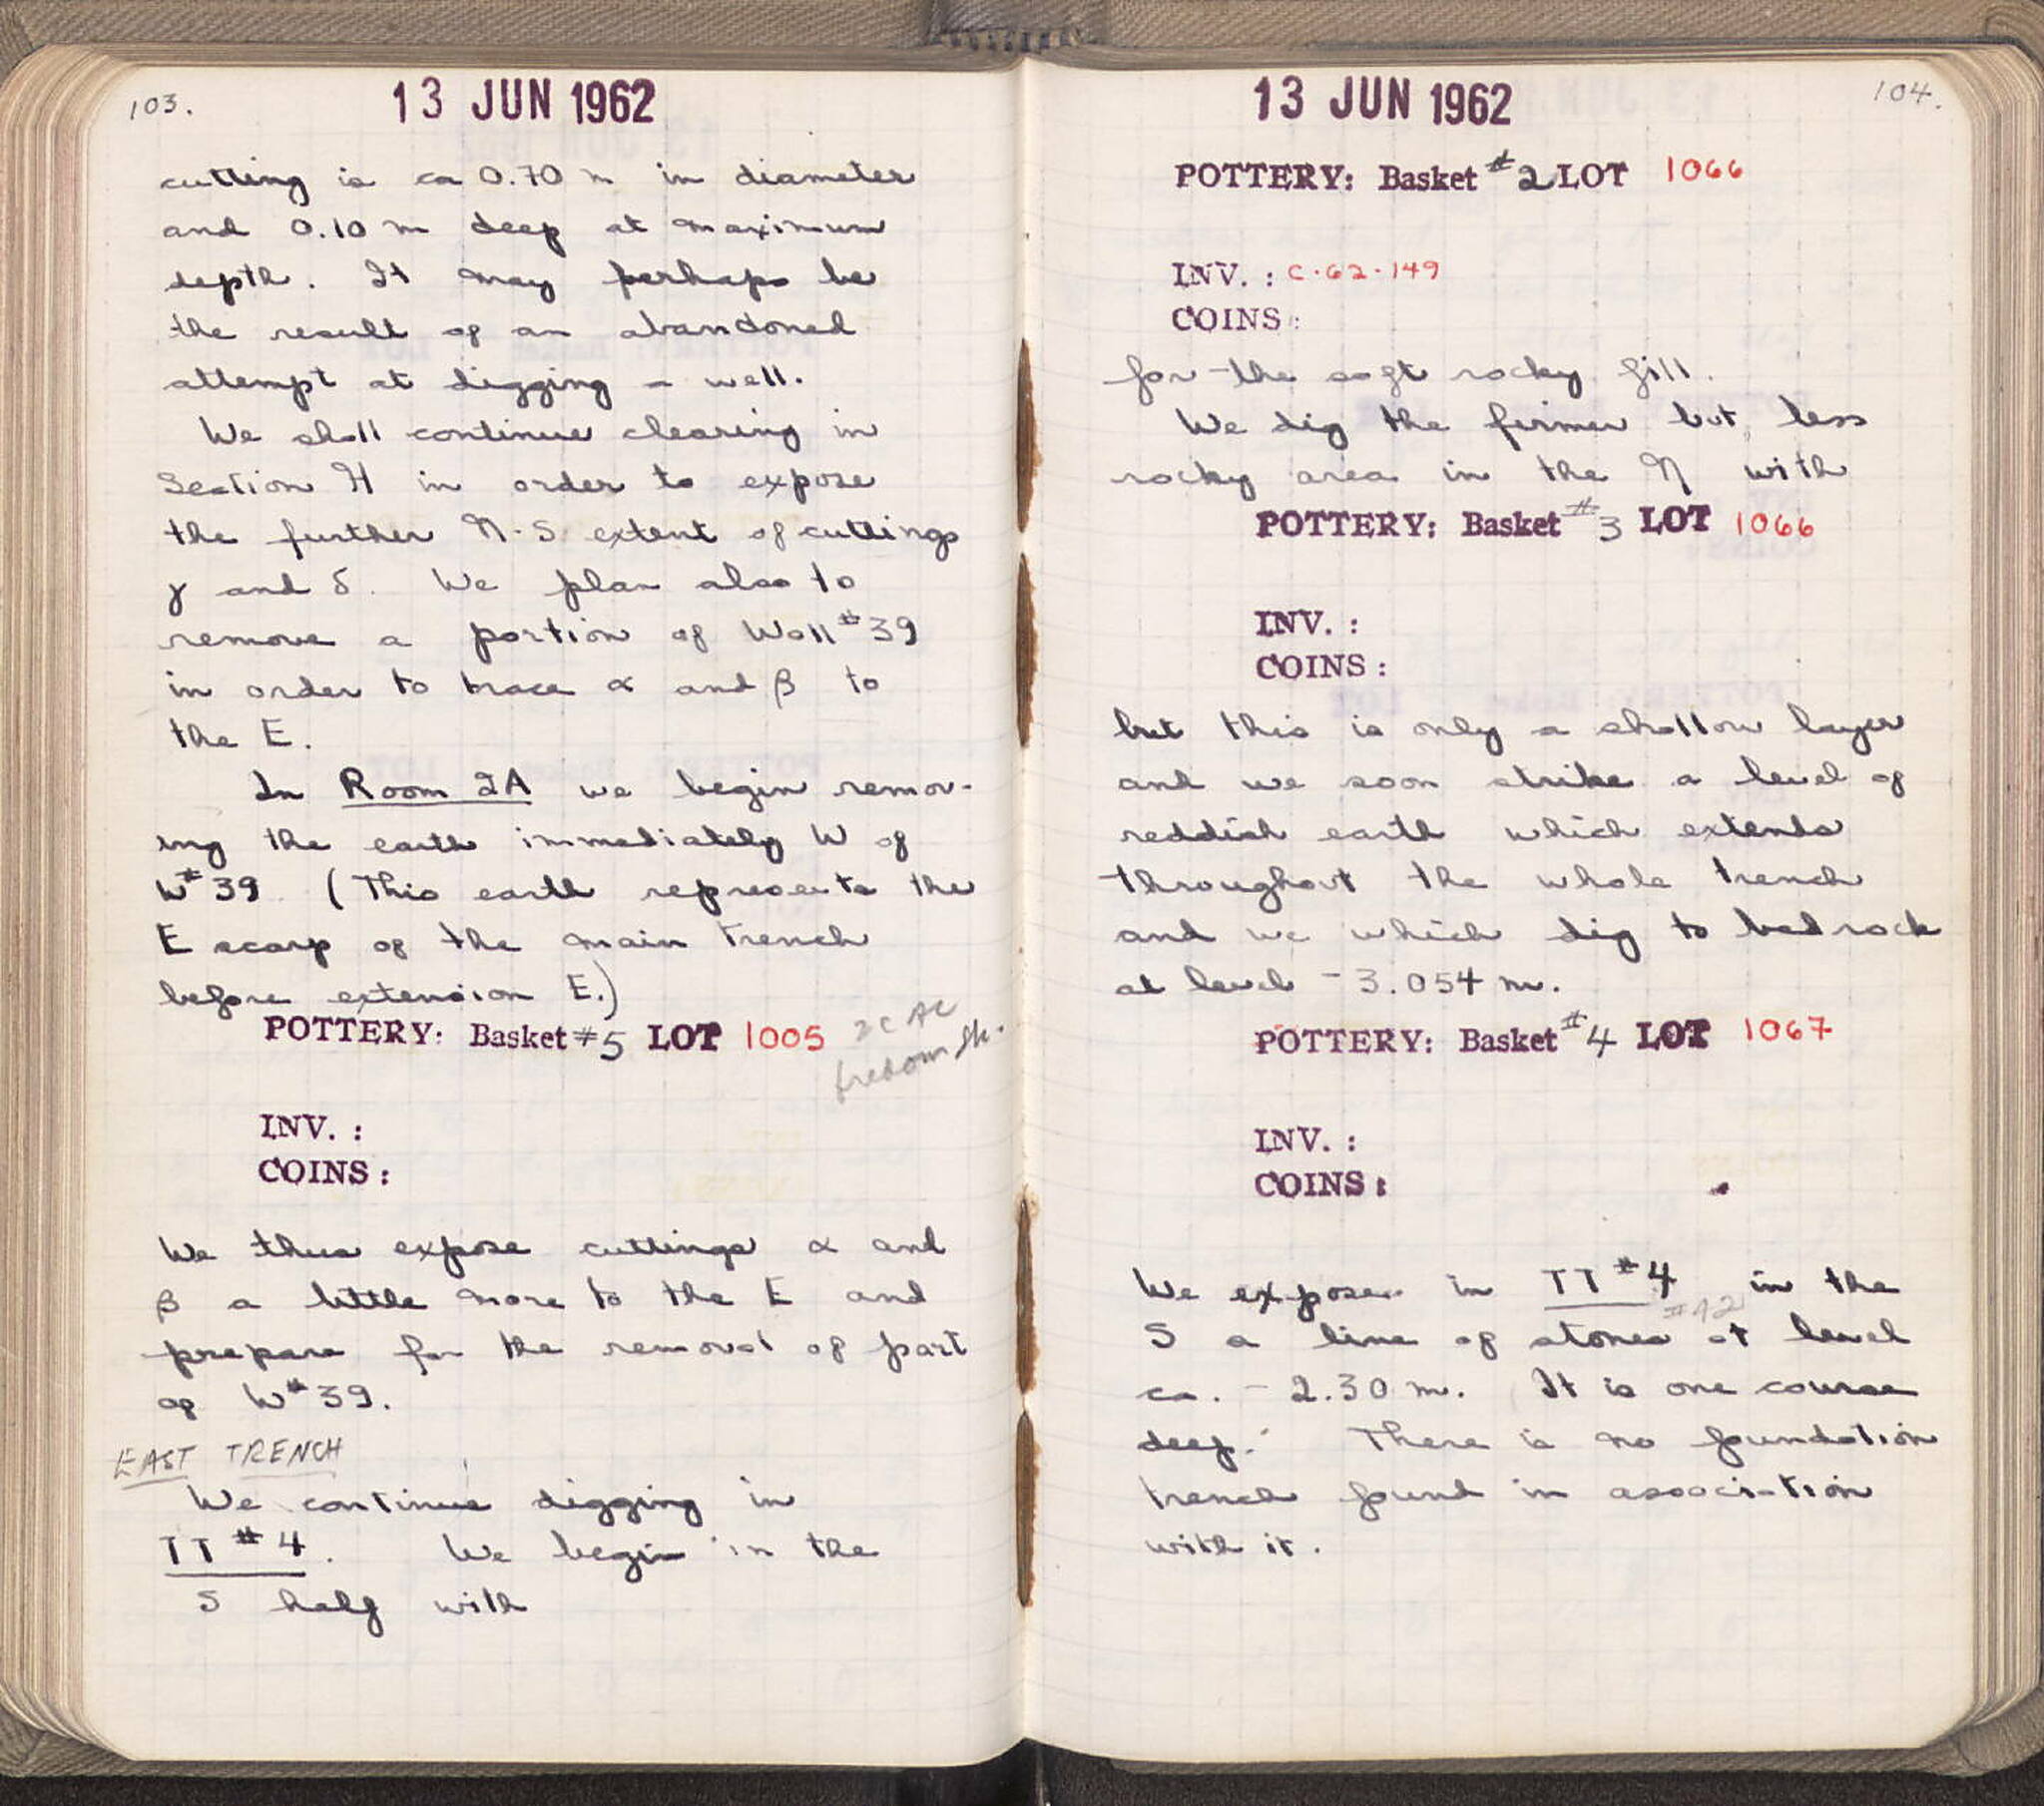 103.
13 JUN 1962
cutting is ca 0.70 m in diameter
and 0.10 m deep at maximum
depth. It may perhaps be
the result of an abandoned
attempt at digging a well.
We shall continue clearing in
Section H in order to expose
the further N-S extent of cuttings
γ and δ. We plan also to
remove a portion of Wall #39
in order to trace α and β to
the E.
In Room 2A we begin remov-
ing the earth immediately W of
W#39. (This earth represents the
E scarp of the main trench
before extension E.)
POTTERY: Basket #5 LOT 1005
2C AC
INV. :
COINS :
We thus expose cuttings α and
β a little more to the E and
prepare for the removal of part
of W#39.
EAST TRENCH
We continue digging in
TT #4. We begin in the
S half with
13 JUN 1962
104.
POTTERY: Basket #2 LOT 1066
INV. : C·62·149
COINS :
for the soft rocky fill.
We dig the firmer but less
rocky area in the N with
POTTERY: Basket #3 LOT 1066
INV. :
COINS :
but this is only a shallow layer
and we soon strike a level of
reddish earth which extends
throughout the whole trench
and we which dig to bedrock
at level -3.054 m.
POTTERY: Basket #4 LOT 1067
INV. :
COINS :
We expose in TT #4 in the
#42
S a line of stones at level
ca. -2.30 m. It is one course
deep. There is no foundation
trench found in association
with it.